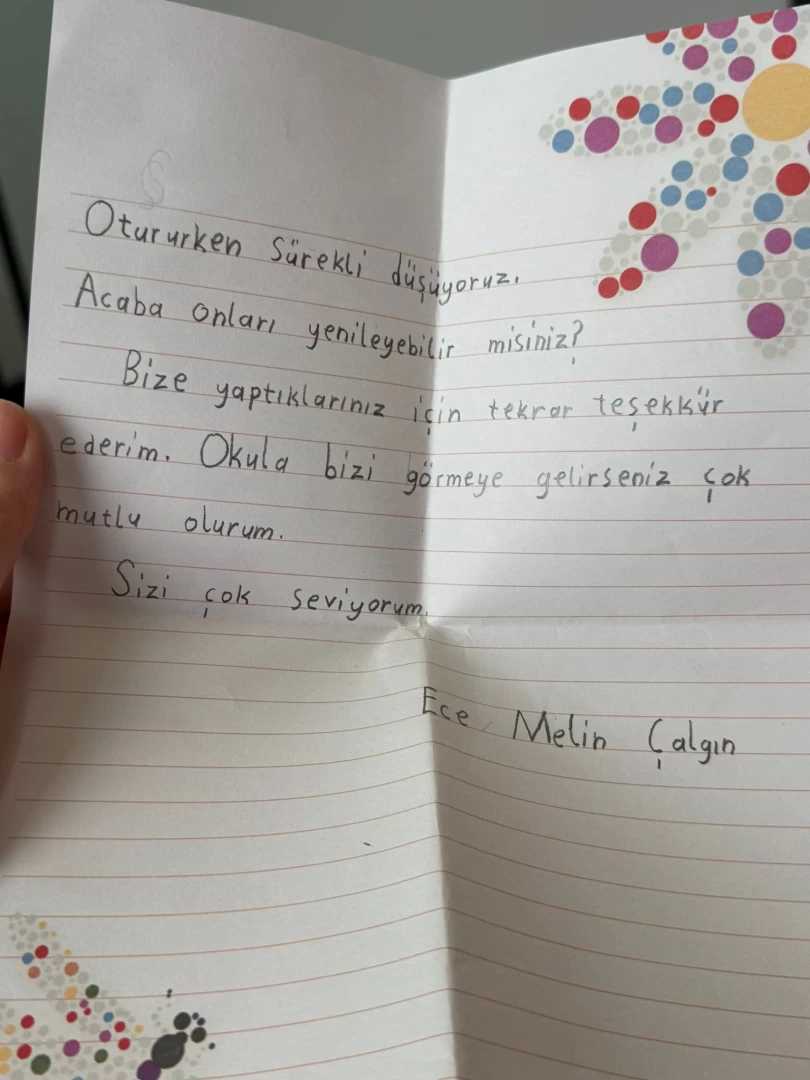 Otururken sürekli düşüyoruz.
Acaba onları yenileyebilir misiniz?
Bize yaptıklarınız için tekrar teşekkür
ederim. Okula bizi görmeye gelirseniz çok
mutlu olurum.
Sizi çok seviyorum.
Ece Melin Çalgın